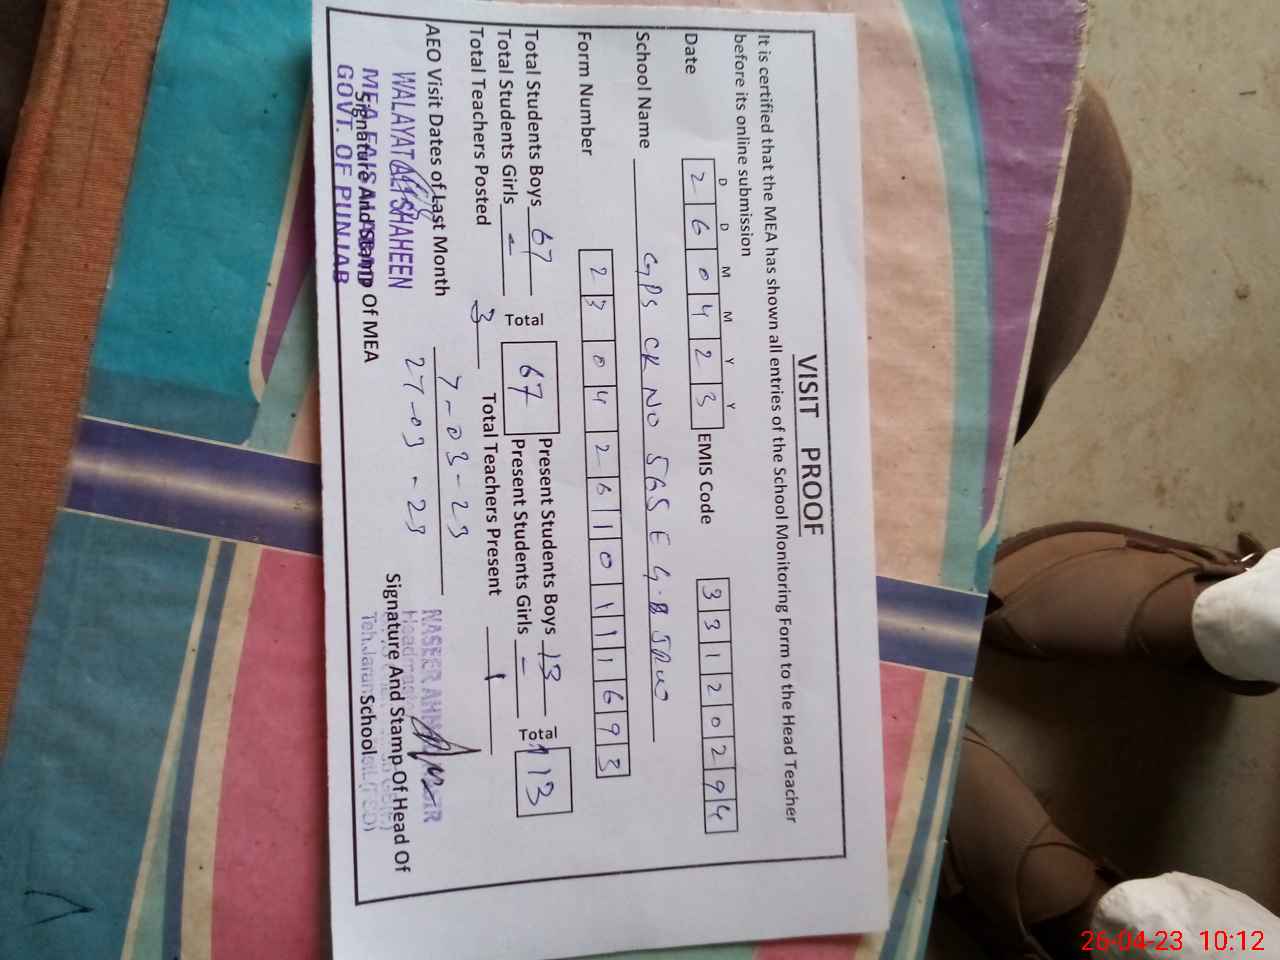 VISIT PROOF
It is certified that the MEA has shown all entries of the School Monitoring Form to the Head Teacher
before its online submission
D D M M Y Y
Date 2 6 0 4 2 3 EMIS Code 3 3 1 2 0 2 9 4
School Name GPS CK NO 565 E G.B JRW
Form Number 2 3 0 4 2 6 1 0 1 1 1 6 9 3
Total Students Boys 67 Total 67 Present Students Boys 13 Total 13
Total Students Girls - Present Students Girls -
Total Teachers Posted 3 Total Teachers Present 1
AEO Visit Dates of Last Month 7-03-23
27-03-23
WALAYAT ALI SHAHEEN
MEA
GOVT. OF PUNJAB
Signature And Stamp Of MEA
NASEER
Signature And Stamp Of Head Of
School
26-04-23 10:12